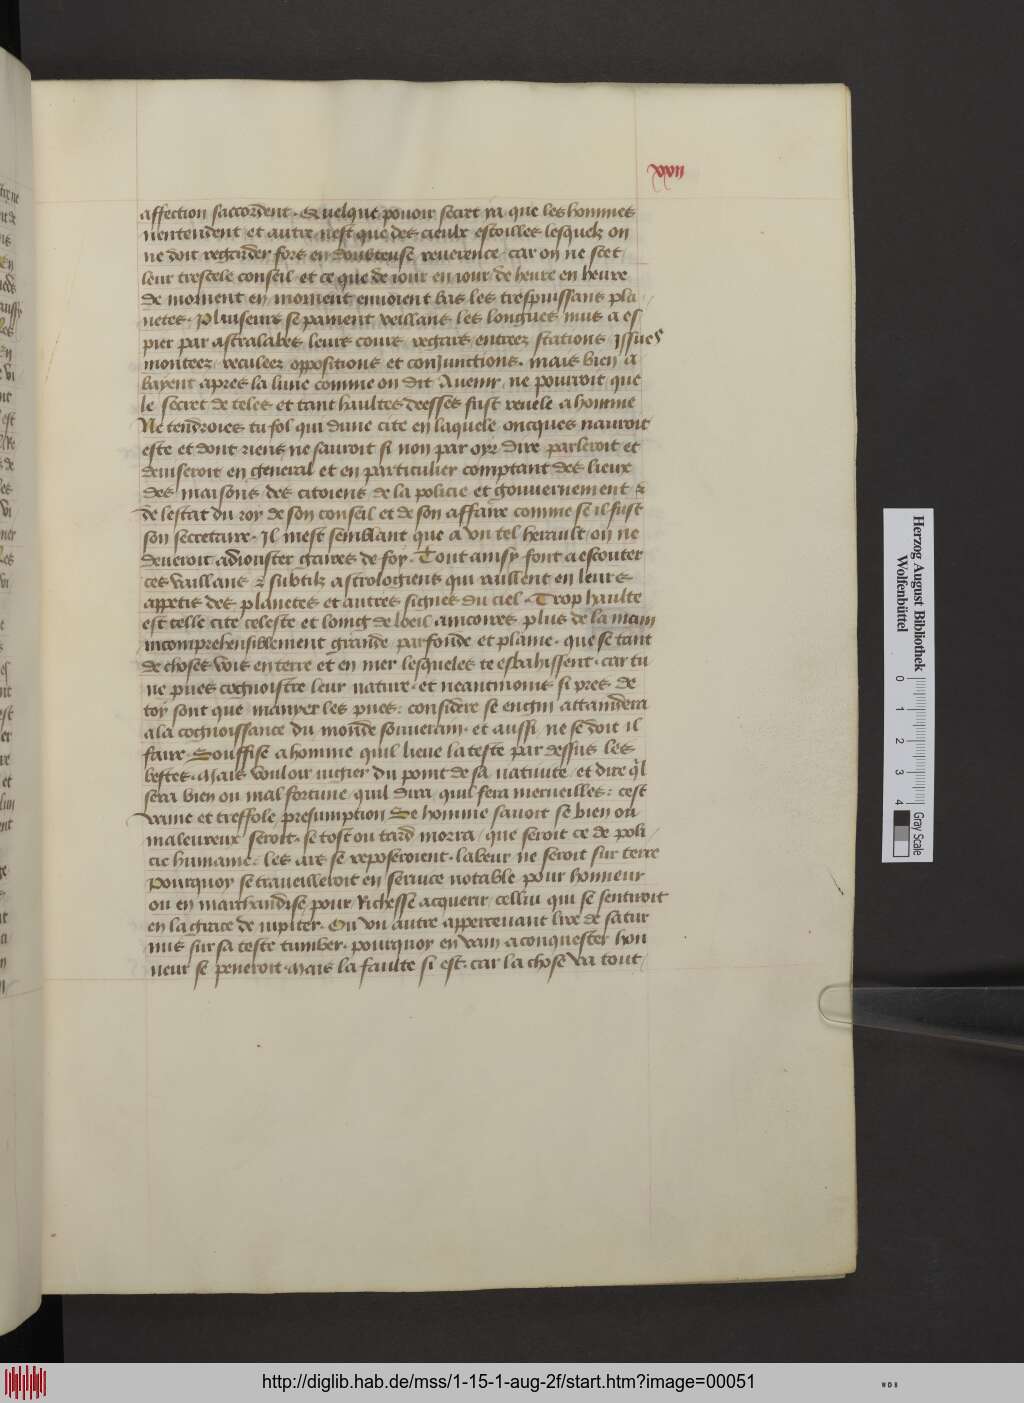 xxvii
affection saccordent · Quelque pouoir secret ya que les hommes
nentendent et autre nest que des cieulx estoilles lesquelz on
ne doit regarder fors en doubteuse reuerence · car on ne scet
leur trescele conseil et ce que de iour en iour de heure en heure
de moment en moment enuoient bas les trespuissans pla /
netes · Pluiseurs se painent veillans les longues nuis a es
pier par astralabes leurs cours regars entreez stations issues
monteez reculeez oppositions et coniunctions · mais bien a
bayent apres la lune comme on dit Auenir ne pourroit que
le secret de teles et tant haultes deesses fust reuele a homme
Ne tendroies tu fol qui dune cite en laquele oncques nauroit
este et dont riens ne sauroit si non par oyr dire parleroit et
deuiseroit en general et en particulier comptant des lieux
des maisons des citoiens de la policie et gouuernement &
de lestat du roy de son conseil et de son affaire comme se il fust
son secretaire · Il mest semblant que a vn tel herault on ne
deueroit adiouster gaires de foy · Tout ainsy font a escouter
ces vaillans & subtilz astrologiens qui vaillent en leurs
appetis des planetes et autres signes du ciel · Trop haulte
est celle cite celeste et loing de loeil ancoires plus de la main
incomprehensiblement grande parfonde et plaine · que se tant
de choses vois en terre et en mer lesqueles te esbahissent · car tu
ne pues cognoistre leur nature · et neantmoins si pres de
toy sont que manyer les pues : considere se engin attaindera
a la cognoissance du monde souuerain · et aussi ne se doit il
faire · Souffise a homme quil lieue la teste par dessus les
bestes · Mais vouloir iugier du point de sa natiuite et dire q̃l
sera bien ou mal fortune quil dira / quil fera merueilles : cest
vaine et tresfole presumption Se homme sauoit se bien ou
maleureux seroit · se tost ou tard morra / que seroit ce de poli /
cie humaine : les ars se reposeroient · labeur ne seroit sur terre
Pourquoy se traueilleroit en seruice notable pour honneur
ou en marchandise pour Richesse acquerir cellui qui se sentiroit
en la grace de iupiter · Ou vn autre apperceuant lire de satur
nus sur sa teste tumber · pourquoy en vain a conquester hon
neur se peneroit · Mais la faulte si est : car la chose va tout /
Herzog August Bibliothek
Wolfenbüttel
0 1 2 3 4
Gray Scale
http://diglib.hab.de/mss/1-15-1-aug-2f/start.htm?image=00051
WDB